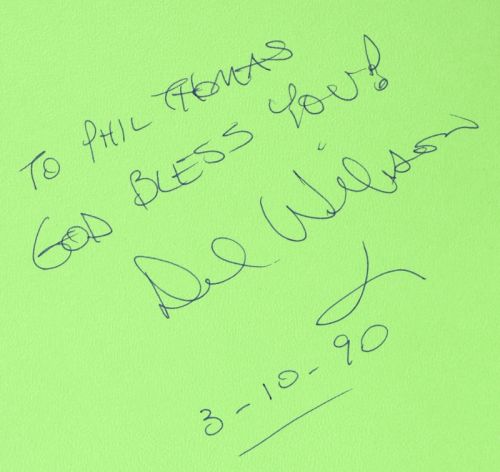 TO PHIL THOMAS
GOD BLESS YOU!
Del Wilson
3-10-90